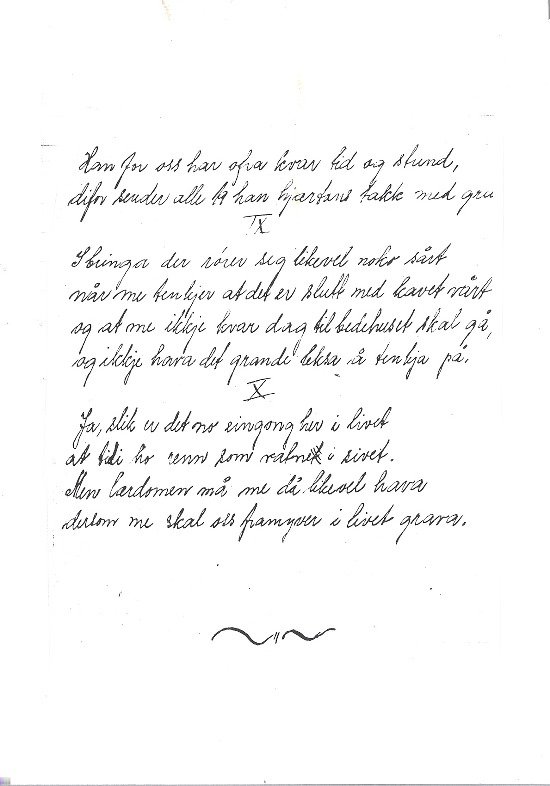 Han for oss har ofra kvar tid og stund,
difor sender alle 19 han hjartans takk med gru
IX
I bringa der rører seg likevel noko sårt
når me tenkjer at det er slutt med kavet vårt
og at me ikkje kvar dag til bedehuset skal gå,
og ikkje hava det grande leksa å tenkja på.
X
Ja, slik er det no eingong her i livet
at tidi ho renn som vatnet i sivet.
Men lærdomen må me då likevel hava
dersom me skal oss framyver i livet grava.